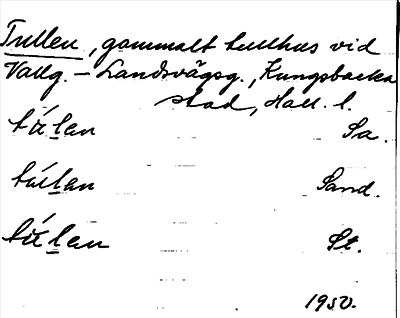 Tullen, gammalt tullhus vid
Vallg. – Landsvägsg., Kungsbacka
stad, Hall. l.
túlan Sa.
túlan Sand.
túlan St.
1950.